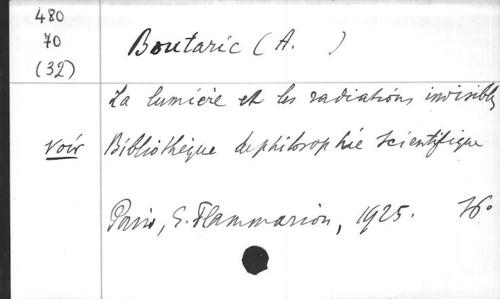 480
70
(32)
Boutaric (A. )
La lumière et les radiations invisibles
voir Bibliothèque de philosophie scientifique
Paris, E. Flammarion, 1925. 16°